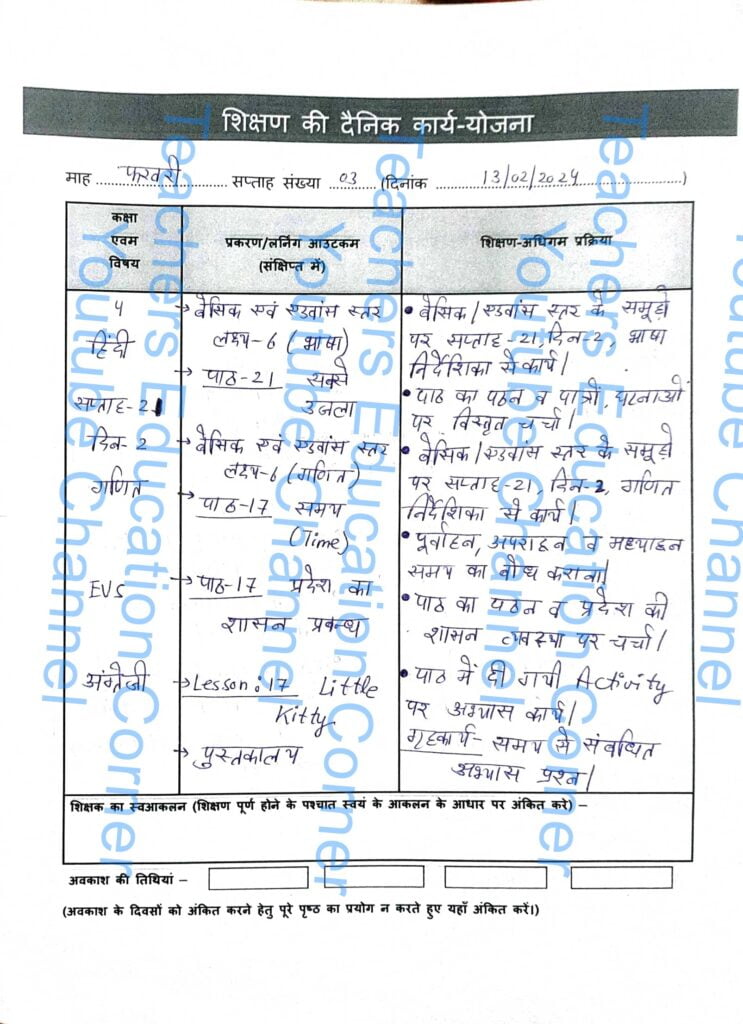 शिक्षण की दैनिक कार्य-योजना
माह फरवरी सप्ताह संख्या 03 (दिनांक 13/02/2024)
कक्षा एवम विषय
प्रकरण/लर्निंग आउटकम (संक्षिप्त में)
शिक्षण-अधिगम प्रक्रिया
५
हिंदी
सप्ताह-21
दिन-2
गणित
EVS
अंग्रेजी
→ बेसिक एवं एडवांस स्तर
लक्ष्य-6 (भाषा)
→ पाठ-21 सबसे
उजला
→ बेसिक एवं एडवांस स्तर
लक्ष्य-6 (गणित)
→ पाठ-17 समय
(Time)
→ पाठ-17 प्रदेश का
शासन प्रबन्ध
→ Lesson:17 Little
Kitty
→ पुस्तकालय
• बेसिक/एडवांस स्तर के समूहो
पर सप्ताह-21, दिन-2, भाषा
निर्देशिका से कार्य।
• पाठ का पठन व पात्रो, घटनाओं
पर विस्तृत चर्चा।
• बेसिक/एडवांस स्तर के समूहो
पर सप्ताह-21, दिन-2, गणित
निर्देशिका से कार्य।
• पूर्वाहन, अपराहन व मध्याहन
समय का बोध कराना।
• पाठ का पठन व प्रदेश की
शासन व्यवस्था पर चर्चा।
• पाठ में दी गयी Activity
पर अभ्यास कार्य।
गृहकार्य- समय से संबंधित
अभ्यास प्रश्न।
शिक्षक का स्वआकलन (शिक्षण पूर्ण होने के पश्चात स्वयं के आकलन के आधार पर अंकित करे) –
अवकाश की तिथियां –
(अवकाश के दिवसों को अंकित करने हेतु पूरे पृष्ठ का प्रयोग न करते हुए यहाँ अंकित करें।)
Teachers Education Corner
Youtube Channel
Teachers Education Corner
Youtube Channel
Teachers Education Corner
Youtube Channel